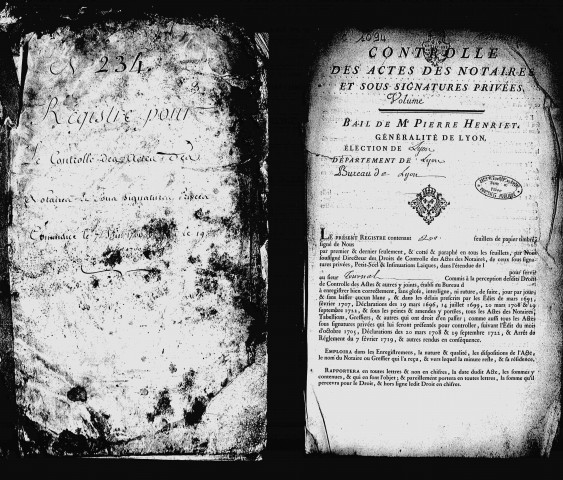 N° 234
Registre pour
le Controlle des Actes des
Notaires & sous signatures privées
Commencé le
CONTROLLE
DES ACTES DES NOTAIRES
ET SOUS SIGNATURES PRIVÉES.
Volume
BAIL DE Me PIERRE HENRIET.
GÉNÉRALITÉ DE LYON.
ÉLECTION DE Lyon
DÉPARTEMENT DE Lyon
Bureau de Lyon
LE PRÉSENT REGISTRE contenant feuilles de papier timbré
signé de Nous
par premier & dernier seulement, & cotté & paraphé en tous les feuillets, par Nous
soussigné Directeur des Droits de Controlle des Actes des Notaires, de ceux sous signa-
tures privées, Petit-Scel & Insinuations Laïques, dans l'étendue de l
pour servir
au sieur Commis à la perception desdits Droits
de Controlle des Actes & autres y joints, établi au Bureau d
à enregistrer bien correctement, sans glose, interligne, ni rature, de suite, jour par jour,
& sans laisser aucun blanc, & dans les délais prescrits par les Édits de mars 1693,
février 1707, Déclarations des 19 mars 1696, 14 juillet 1699, 20 mars 1708 & 29
septembre 1722, & sous les peines & amendes y portées, tous les Actes des Notaires,
Tabellions, Greffiers, & autres qui ont droit d'en passer; comme aussi tous les Actes
sous signatures privées qui lui seront présentés pour controller, suivant l'Édit du mois
d'octobre 1705, Déclarations des 20 mars 1708 & 29 septembre 1722, & Arrêt de
Réglement du 7 février 1719, & autres rendus en conséquence.
EMPLOIRA dans les Enregistremens, la nature & qualité, les dispositions de l'Acte,
le nom du Notaire ou Greffier qui l'a reçu, & vers lequel la minute reste, & sa résidence.
RAPPORTERA en toutes lettres & non en chifres, la date dudit Acte, les sommes y
contenues, & qui en font l'objet; & pareillement portera en toutes lettres, la somme qu'il
percevra pour le Droit, & hors ligne ledit Droit en chifres.